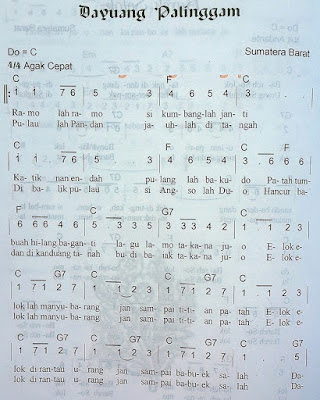 Dayuang Palinggam
Do = C
Sumatera Barat
4/4 Agak Cepat
C F C
1 1 76 5 3 4 6 5 4 3
Ra- mo lah ra- mo si kum- bang-lah jan- ti
Pu- lau lah Pan- dan ja- uh- lah di ta- ngah
C F C F
1 1 76 5 3 4 6 5 4 3 . 6 6 6
Ka- tik nan en- dah pu- lang lah ba- ku- do Pa- tah tum-
Di ba- lik pu- lau si Ang- so lah Du- o Hancur ba-
C G7 C
buah hi-lang ba-gan- ti la-gu la- mo ta-ka-na ju- o E- lok e-
dan di kanduang ta- nah bu- di ba- iak ta-ka-na ju- o E- lok e-
G7 C G7 C
1 7 1 2 7
lok lah ma-nyu- ba- rang jan sam- pai ti- ti- an pa- tah E- lok e-
lok lah ma-nyu- ba- rang jan sam- pai ti- ti- an pa- tah E- lok e-
G7 C G7 C
1 7 1 2 7
lok di ran-tau u- rang jan sam- pai ba-bu-ek sa- lah Da-
lok di ran-tau u- rang jan sam- pai ba-bu-ek sa- lah Da-